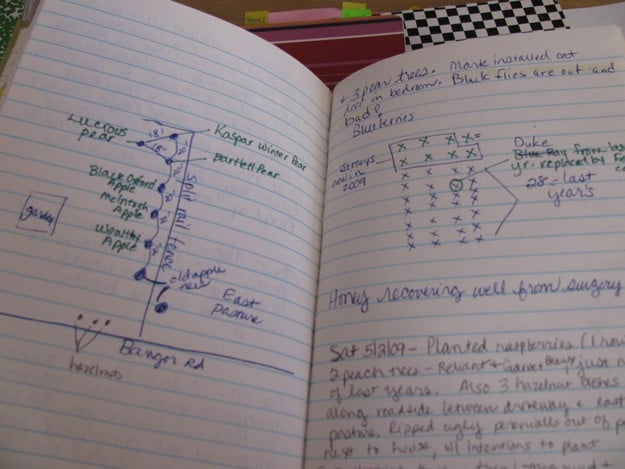 Luscious
pear
18'
18'
Kaspar Winter Pear
Bartlett Pear
Black Oxford
Apple
McIntosh
Apple
Wealthy
Apple
Split rail fence
Garden
old apple
East
Pasture
Bangor Rd
hazelnuts
+ 3 pear trees. Mark installed cat
in bedroom. Black flies are out and
bad!
Blueberries
Jerseys
new in
2009
Duke
Blue Ray from last
yr. replaced by
28 - last
years
Honey recovering well from surgery
Sat 5/2/09 - Planted raspberries (1 row
2 peach trees - Reliant + just n
of last years. Also 3 hazelnut bushes
along roadside between driveway + east
pasture. Ripped ugly perennials out of
next to house, w/ intentions to plant